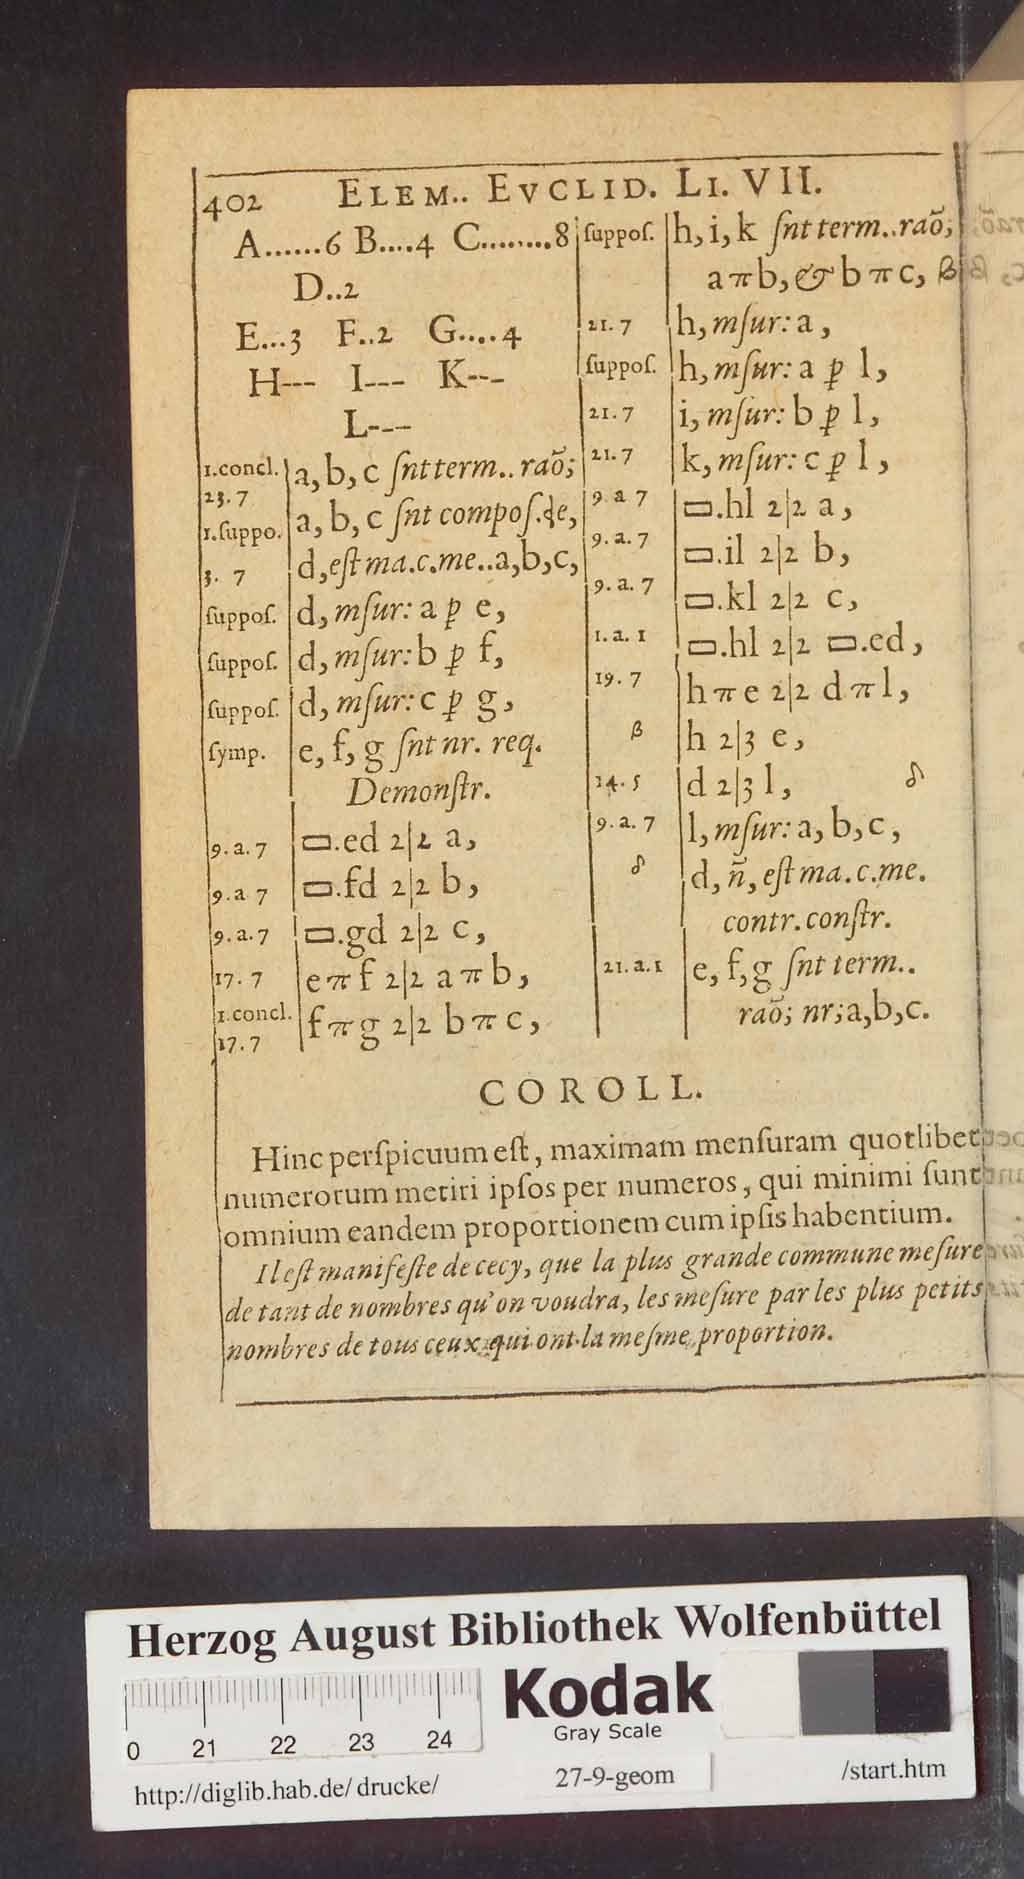 402 ELEM.. EVCLID. LI. VII.
A......6 B....4 C........8
D..2
E...3 F..2 G....4
H--- I--- K---
L---
1.concl. a, b, c ſnt term.. raõ;
23. 7
1.ſuppo. a, b, c ſnt compoſ.
3. 7 d, eſt ma.c.me..a,b,c,
ſuppoſ. d, mſur: a ꝑ e,
ſuppoſ. d, mſur: b ꝑ f,
ſuppoſ. d, mſur: c ꝑ g,
ſymp. e, f, g ſnt nr. req.
Demonſtr.
9. a. 7 ▭.ed 2|2 a,
9. a 7 ▭.fd 2|2 b,
9. a. 7 ▭.gd 2|2 c,
17. 7 e π f 2|2 a π b,
1.concl. f π g 2|2 b π c,
17. 7
ſuppoſ. h, i, k ſnt term.. raõ;
a π b, & b π c, β
21. 7 h, mſur: a,
ſuppoſ. h, mſur: a ꝑ l,
21. 7 i, mſur: b ꝑ l,
21. 7 k, mſur: c ꝑ l,
9 a 7 ▭.hl 2|2 a,
9. a. 7 ▭.il 2|2 b,
9. a. 7 ▭.kl 2|2 c,
1. a. 1 ▭.hl 2|2 ▭.ed,
19. 7 h π e 2|2 d π l,
β h 2|3 e,
14. 5 d 2|3 l, δ
9. a. 7 l, mſur: a, b, c,
δ d, ñ, eſt ma. c. me.
contr. conſtr.
21. a. 1 e, f, g ſnt term..
raõ; nr; a, b, c.
COROLL.
Hinc perſpicuum eſt, maximam menſuram quotlibet
numerorum metiri ipſos per numeros, qui minimi ſunt
omnium eandem proportionem cum ipſis habentium.
Il eſt manifeſte de cecy, que la plus grande commune meſure
de tant de nombres qu'on voudra, les meſure par les plus petits
nombres de tous ceux qui ont la meſme proportion.
Herzog August Bibliothek Wolfenbüttel
Kodak
Gray Scale
0 21 22 23 24
http://diglib.hab.de/ drucke/ 27-9-geom /start.htm